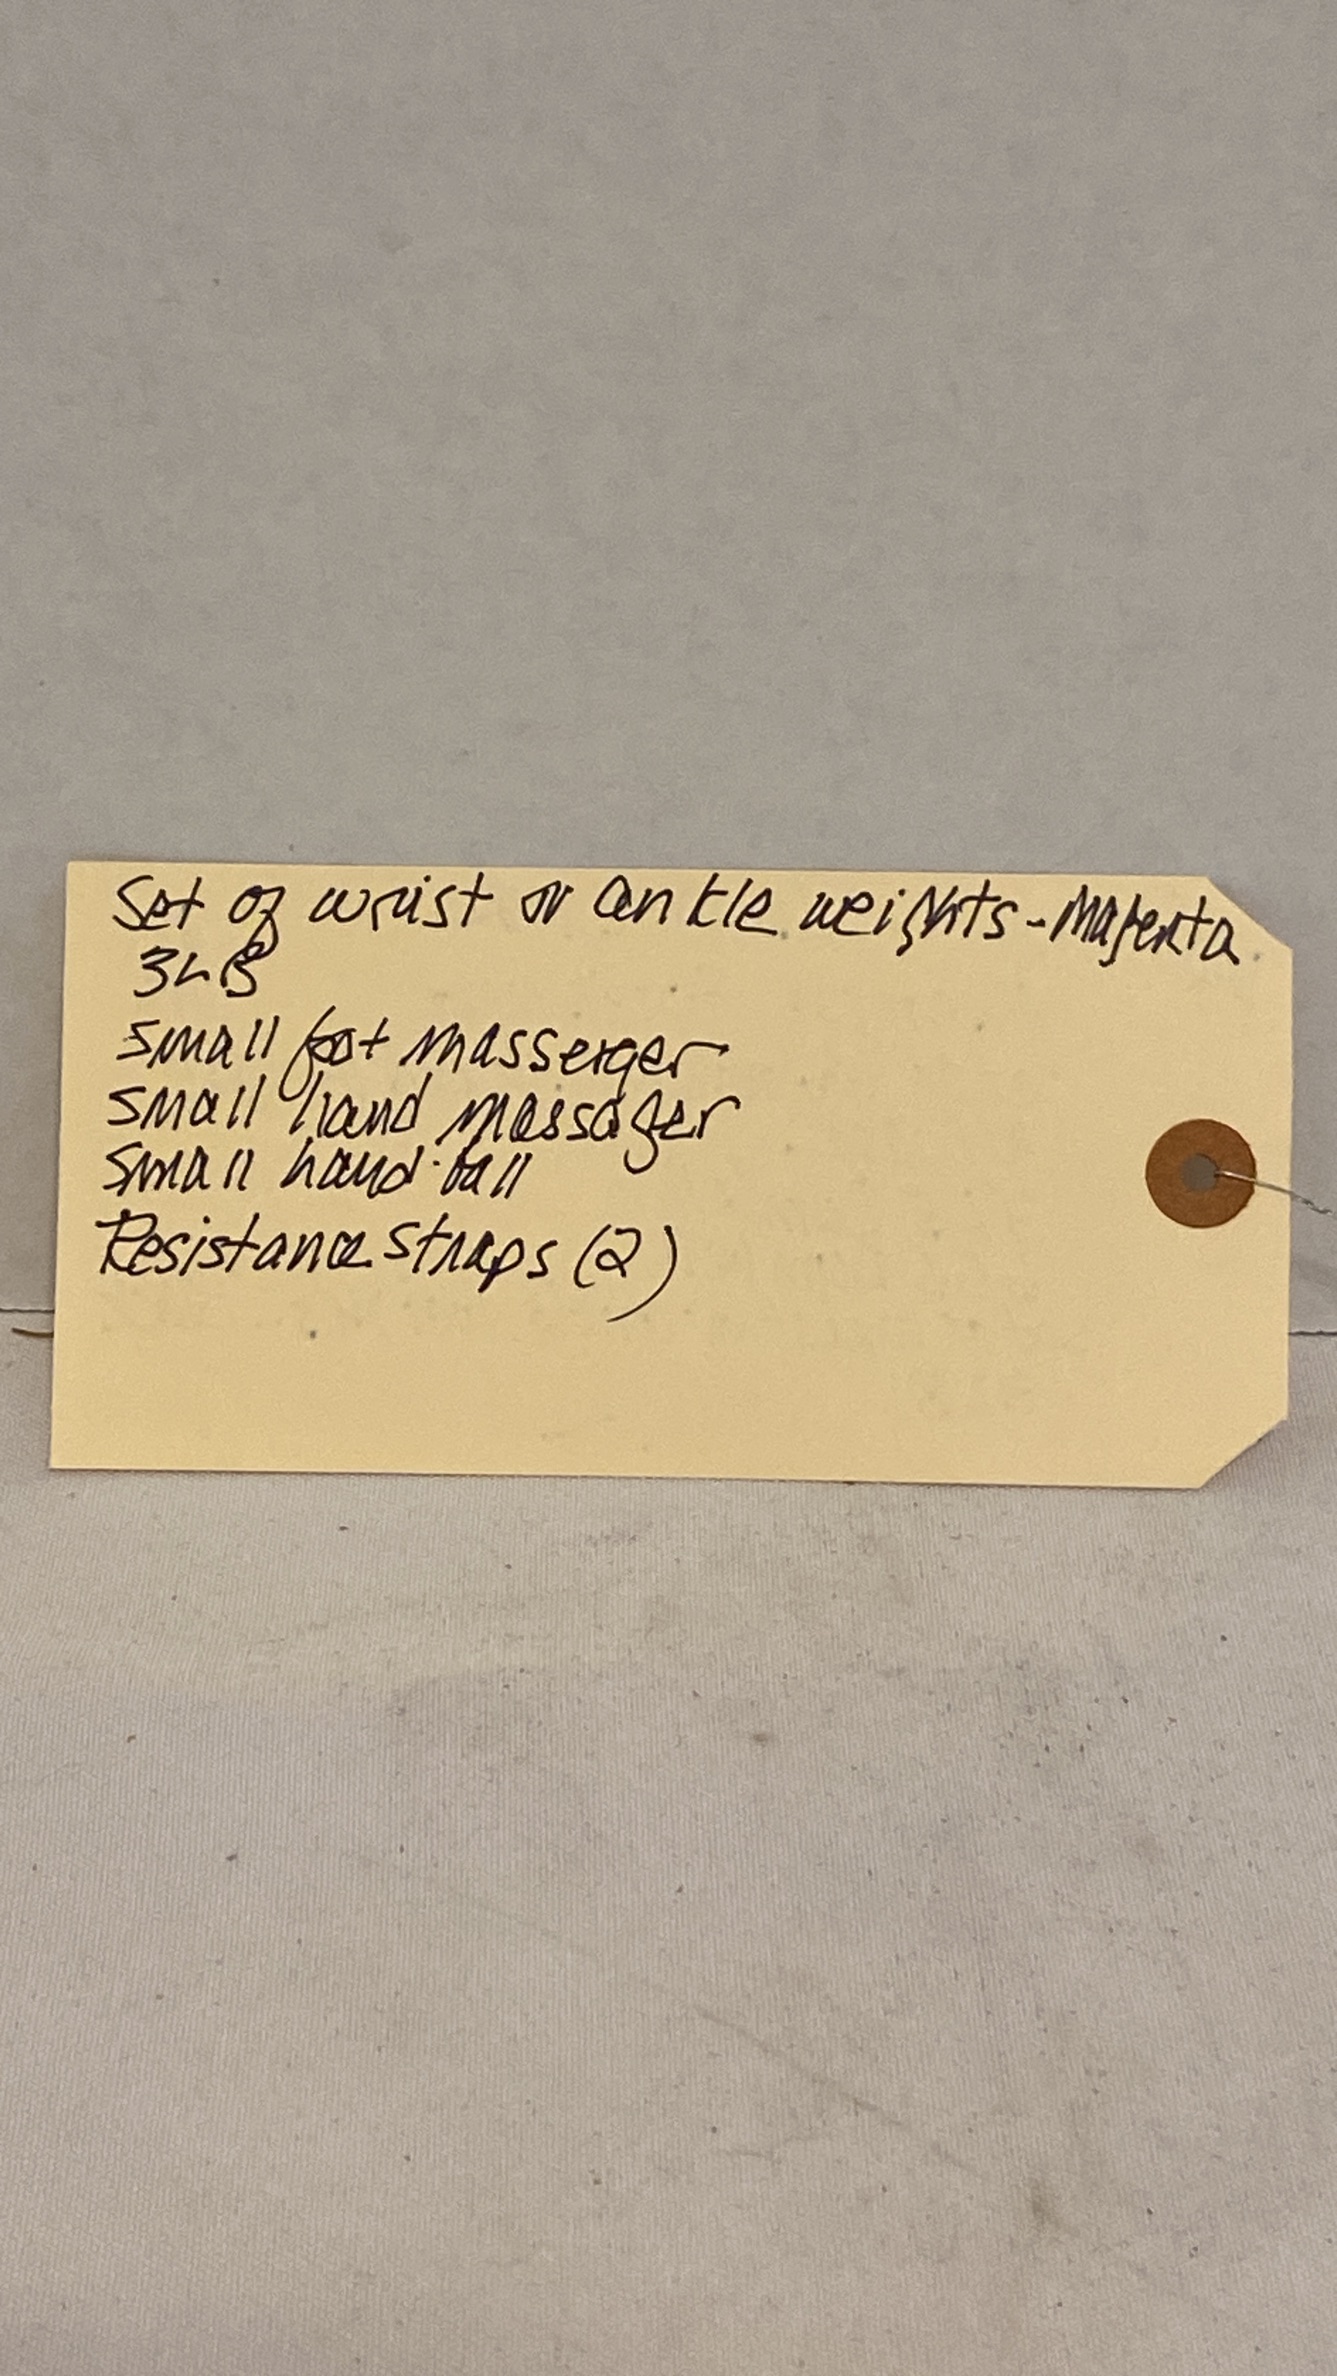 Set of wrist or ankle weights - Magenta
3LB
small foot masserger
small hand massager
small hand ball
Resistance straps (2)